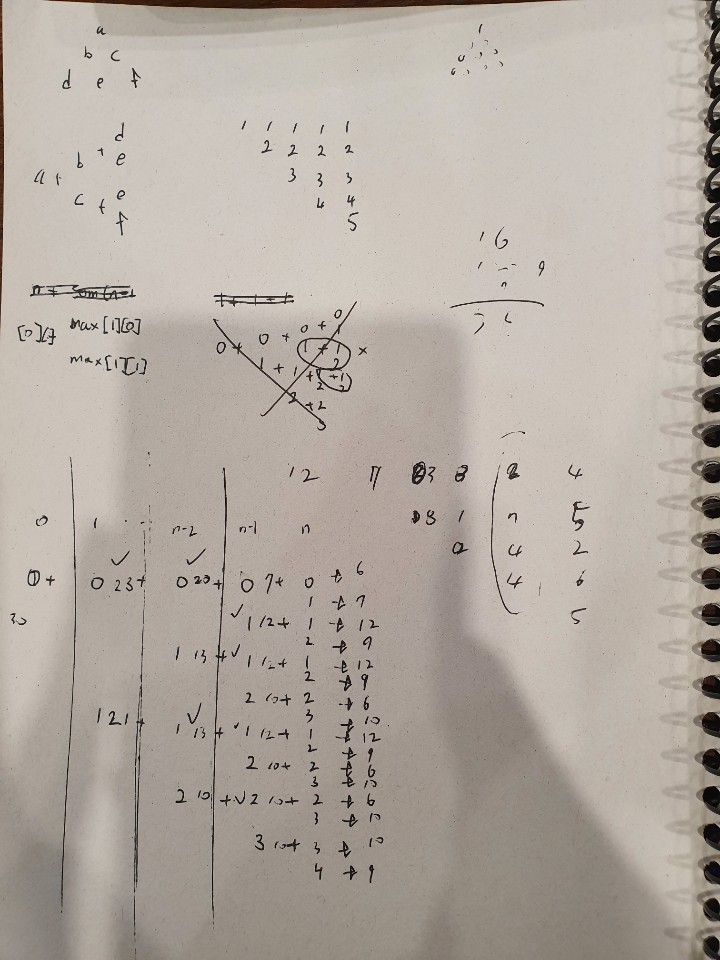 a
b c
d e f
d
b + e
a +
c + e
f
1 1 1 1 1
2 2 2 2
3 3 3
4 4
5
1
16
9
n
[0][
max[1][0]
max[1][1]
0
0 + 0 + 1
0 + 1 + 1 x
1 + 1 2
2 + 2
3
12 7 3 8 4
0 1 n-2 n-1 n 1
0 4 2
0 + 0 23 + 0 20 + 0 7 + 0 → 6 4 6
30 1 → 7 5
✓ 1 12 + 1 → 12
2 → 9
1 13 + ✓ 1 12 + 1 → 12
2 → 9
2 10 + 2 → 6
3 → 10
1 21 + 1 13 + ✓ 1 12 + 1 → 12
2 → 9
2 10 + 2 → 6
3 → 10
2 10 + ✓ 2 10 + 2 → 6
3 → 10
3 10 + 3 → 10
4 → 9